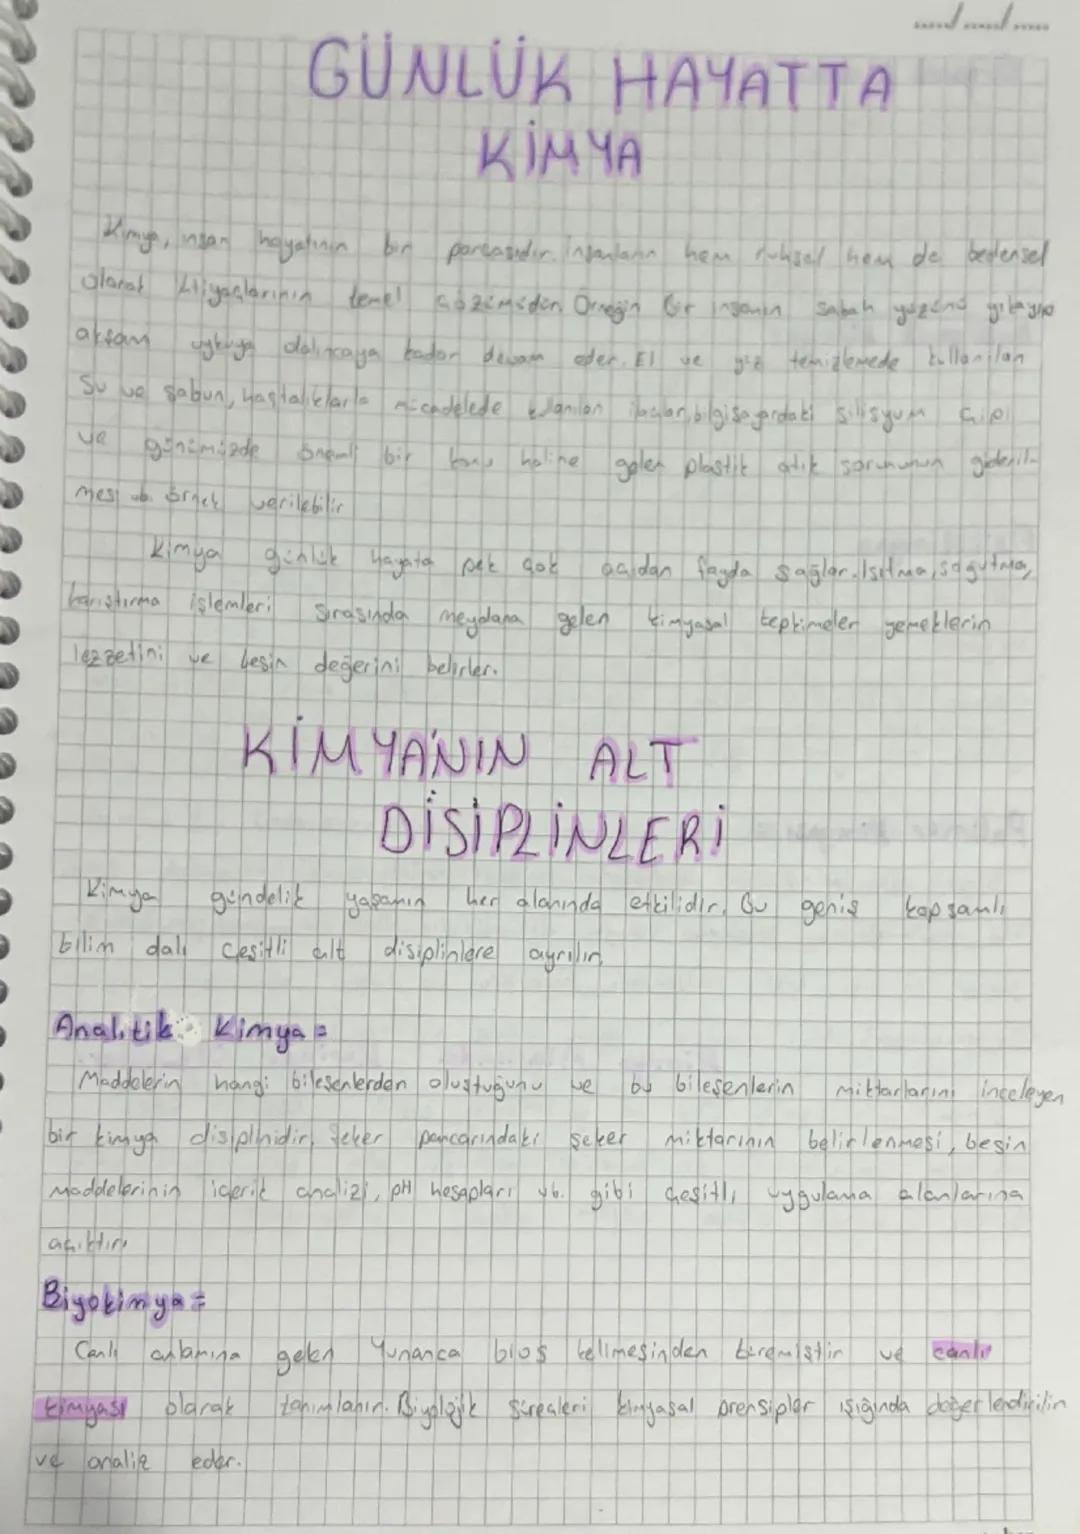 GÜNLÜK HAYATTA
KİMYA
Kimya, insan hayatının bir parçasıdır. insanların hem ruhsal hem de bedensel
olarak ihtiyaçlarının temel çözümüdür. Örneğin bir insanın sabah yüzünü yıkayıp
akşam uykuya dalıncaya kadar devam eder. El ve yüz temizlemede kullanılan
Su ve sabun, hastalıklarla mücadelede kullanılan ilaçlar, bilgisayardaki silisyum çipi
ve günümüzde önemli bir konu haline gelen plastik atık sorununun gideril-
mesi vb. örnek verilebilir
Kimya günlük hayata pek çok açıdan fayda sağlar. Isıtma, soğutma,
karıştırma işlemleri sırasında meydana gelen kimyasal tepkimeler yemeklerin
lezzetini ve besin değerini belirler.
KİMYA'NIN ALT
DİSİPLİNLERİ
Kimya gündelik yaşamın her alanında etkilidir. Bu geniş kapsamlı
bilim dalı çeşitli alt disiplinlere ayrılır.
Analitik Kimya =
Maddelerin hangi bileşenlerden oluştuğunu ve bu bileşenlerin miktarlarını inceleyen
bir kimya disiplinidir. Şeker pancarındaki şeker miktarının belirlenmesi, besin
maddelerinin içerik analizi, pH hesapları vb. gibi çeşitli uygulama alanlarına
açıktır.
Biyokimya =
Canlı anlamına gelen Yunanca bios kelimesinden türemiştir ve canlı
kimyası olarak tanımlanır. Biyolojik süreçleri kimyasal prensipler ışığında değerlendirilir
ve analiz eder.